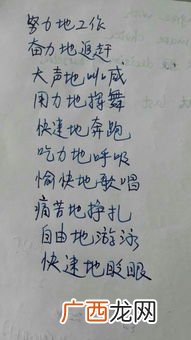 努力地工作
奋力地追赶
大声地叫喊
用力地挥舞
快速地奔跑
吃力地呼吸
愉快地歌唱
痛苦地挣扎
自由地游泳
快速地眨眼
广西龙网